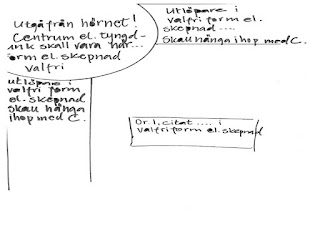 Utgå från hörnet!
Centrum el. tyngd-
unk skall vara här...
orm el. skepnad
valfri
Utlöpare i
valfri form el.
skepnad....
Skall hänga ihop med C.
Utlöpare i
valfri form
el. skepnad
Skall hänga
ihop med C.
Ord, citat.... i
valfri form el. skepnad